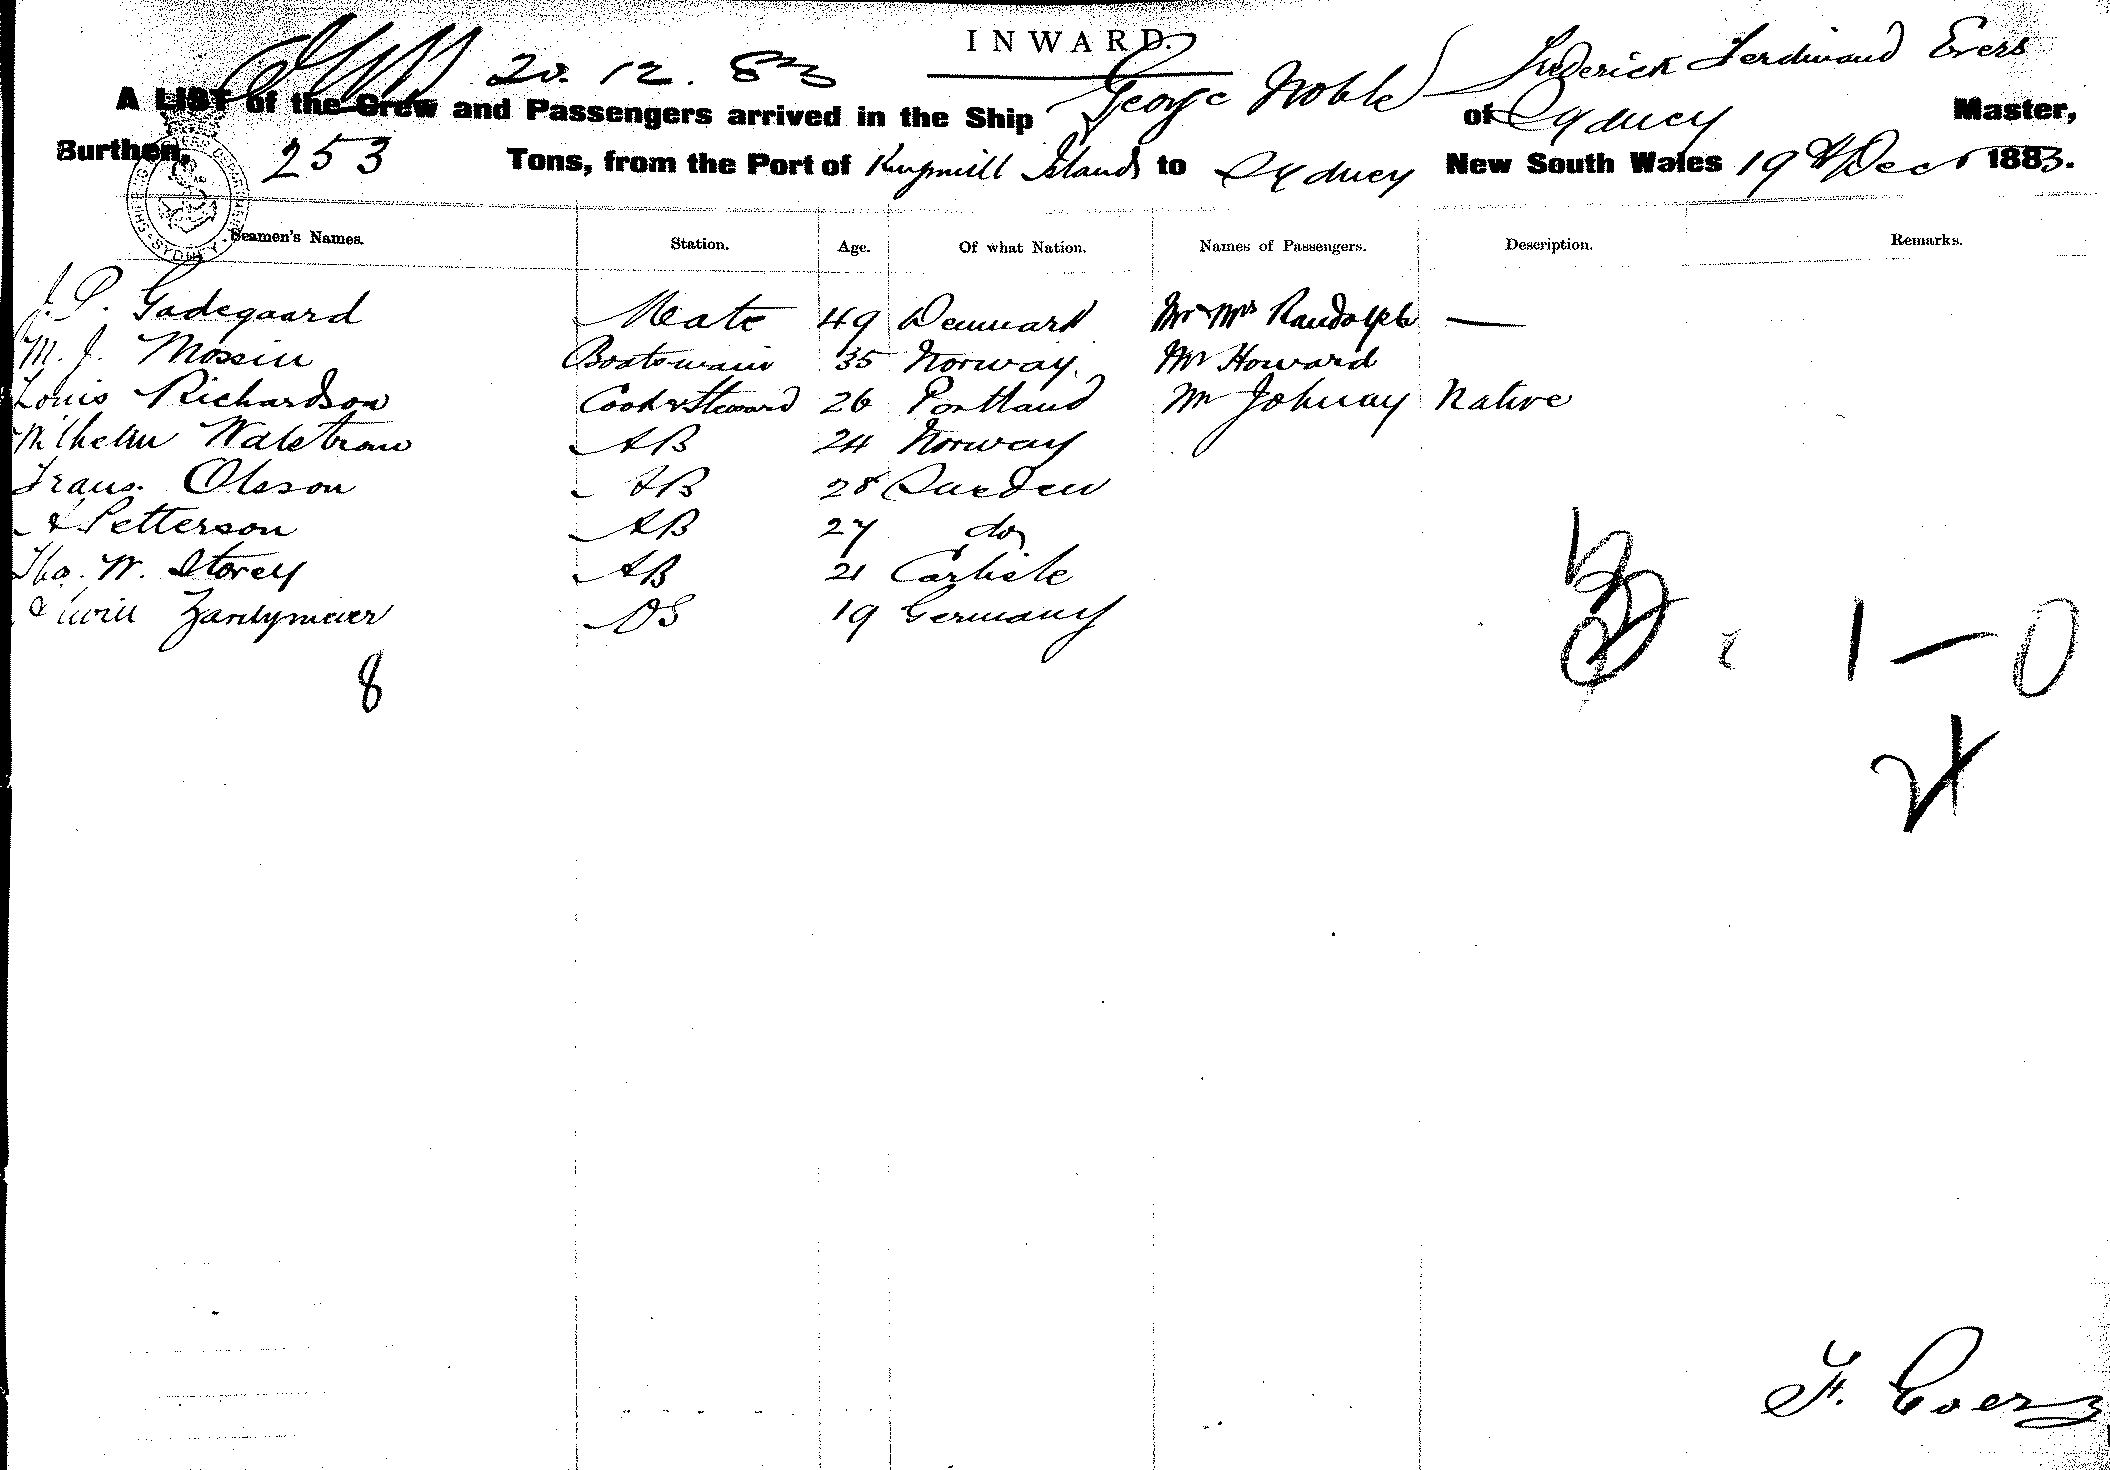 INWARD.
20. 12. 83
Frederick Ferdinand Evers
A LIST of the Crew and Passengers arrived in the Ship George Noble of Sydney Master,
Burthen, 253 Tons, from the Port of Kingsmill Islands to Sydney New South Wales 19th Decr 1883.
Seamen's Names. Station. Age. Of what Nation. Names of Passengers. Description. Remarks.
J. P. Gadegaard Mate 49 Denmark Mr & Mrs Randolph —
M. J. Mossin Boatswain 35 Norway. Mr Howard
Louis Richardson Cook & Steward 26 Portland Mr Johnay Native
Wilhelm Walstrom AB 24 Norway
Frans. Olsson AB 28 Sweden
A Petterson AB 27 do
Tho. W. Storey AB 21 Carlisle
OS 19 Germany
8
1 — 0
F. Evers